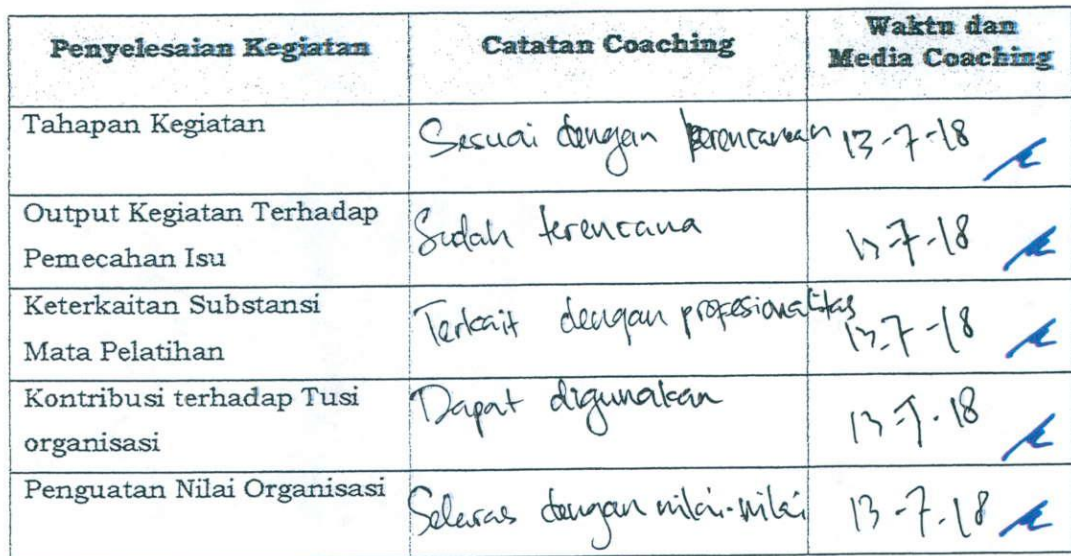 Penyelesaian Kegiatan
Catatan Coaching
Waktu dan
Media Coaching
Tahapan Kegiatan
Sesuai dengan perencanaan
13-7-18
Output Kegiatan Terhadap
Pemecahan Isu
Sudah terencana
13-7-18
Keterkaitan Substansi
Mata Pelatihan
Terkait dengan profesionalitas
13-7-18
Kontribusi terhadap Tusi
organisasi
Dapat digunakan
13-7-18
Penguatan Nilai Organisasi
Selaras dengan nilai-nilai
13-7-18